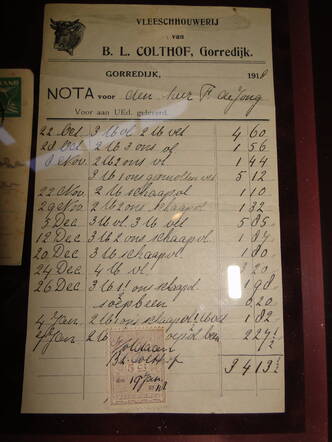 VLEESCHHOUWERIJ
van
B. L. COLTHOF, Gorredijk.
GORREDIJK, 191
NOTA voor den heer F de Jong
Voor aan UEd. geleverd:
22 Oct 3 lb vl 2 lb vet 4 60
2 lb 3 ons vl 1 56
8 Nov 2 lb 2 ons vl 1 44
3 lb 1 ons gesmolten vet 5 12
22 Nov 2 lb schaapvl 1 10
29 Nov 2 lb 2 ons schaapvl 1 32
5 Dec 3 lb vl 3 lb vet 5 85
12 Dec 3 lb 2 ons schaapvl 1 87
20 Dec 3 lb schaapvl 1 80
24 Dec 4 lb vl 3 20
26 Dec 3 lb 1 ons schaap 1 98
soepbeen 0 20
4 Jan 2 lb ons schaapvl 1 82
Jan 2 lb been 2 27 ½
34 13 ½
Voldaan
B L Colthof
19 Jan